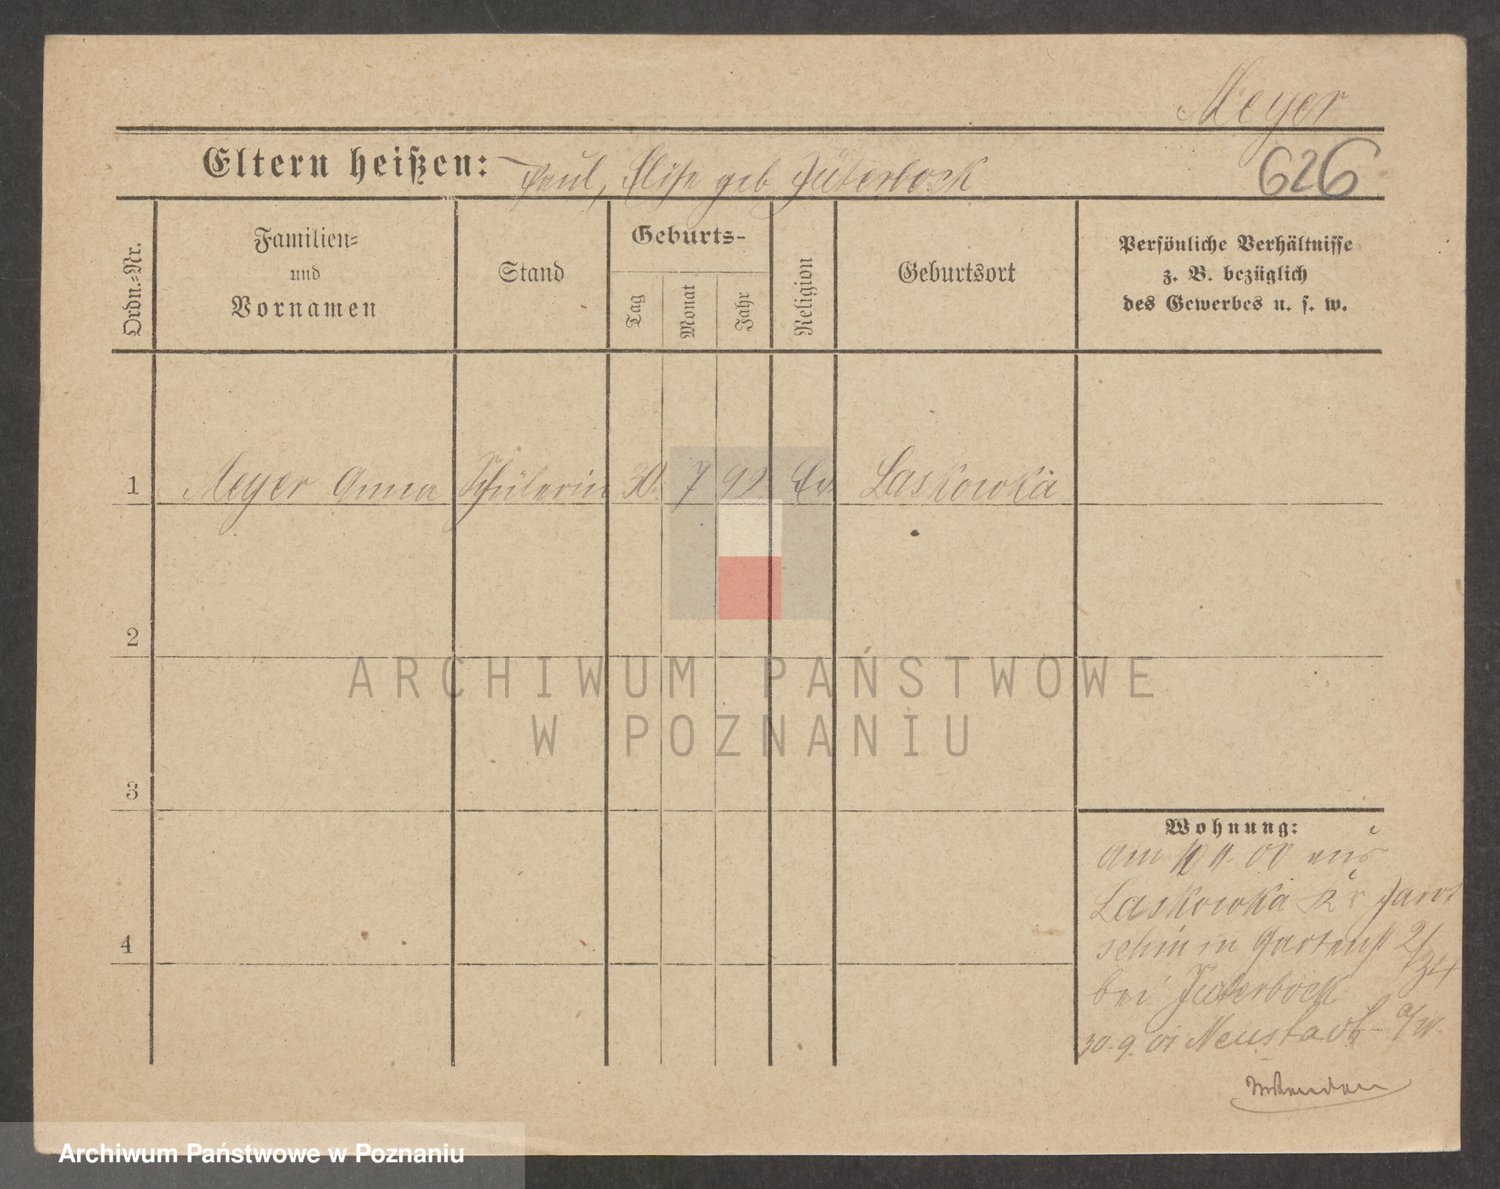 Meyer
Eltern heißen: Paul, Elise geb Jüterbock
626
Ordn.-Nr.
Familien-
und
Vornamen
Stand
Geburts-
Tag
Monat
Jahr
Religion
Geburtsort
Persönliche Verhältnisse
z. B. bezüglich
des Gewerbes u. s. w.
1 Meyer Anna Schülerin 30. 7 Ev Laskowka
2
3
4
Wohnung:
am 00 aus
Laskowka Kr Jarot
schin n Gartenst 2/34
bei Jüterbock
30. 9. 01 Neustadt a/W.
ARCHIWUM PAŃSTWOWE
W POZNANIU
Archiwum Państwowe w Poznaniu